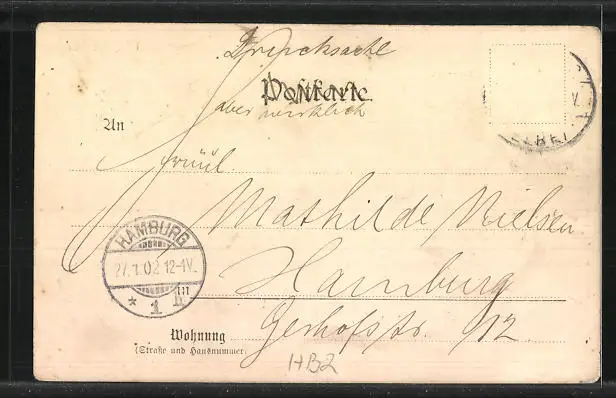 Drucksache
Postkarte
aber wirklich
An
Fräul.
Mathilde Nielsen
Hamburg
Gerhofstr. 12
HAMBURG
27.1.02 12-1V.
* 1
Wohnung
(Straße und Hausnummer)
HB2